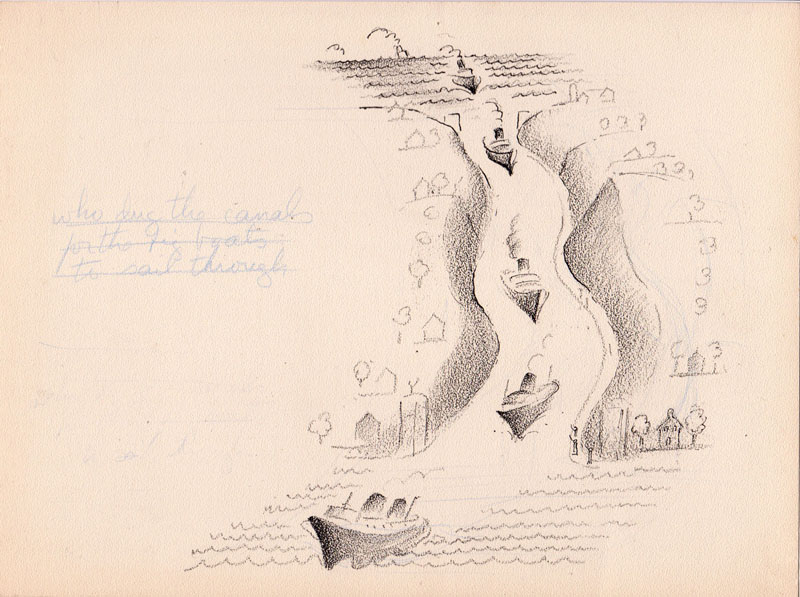 who dug the canals
for the big boats
to sail through